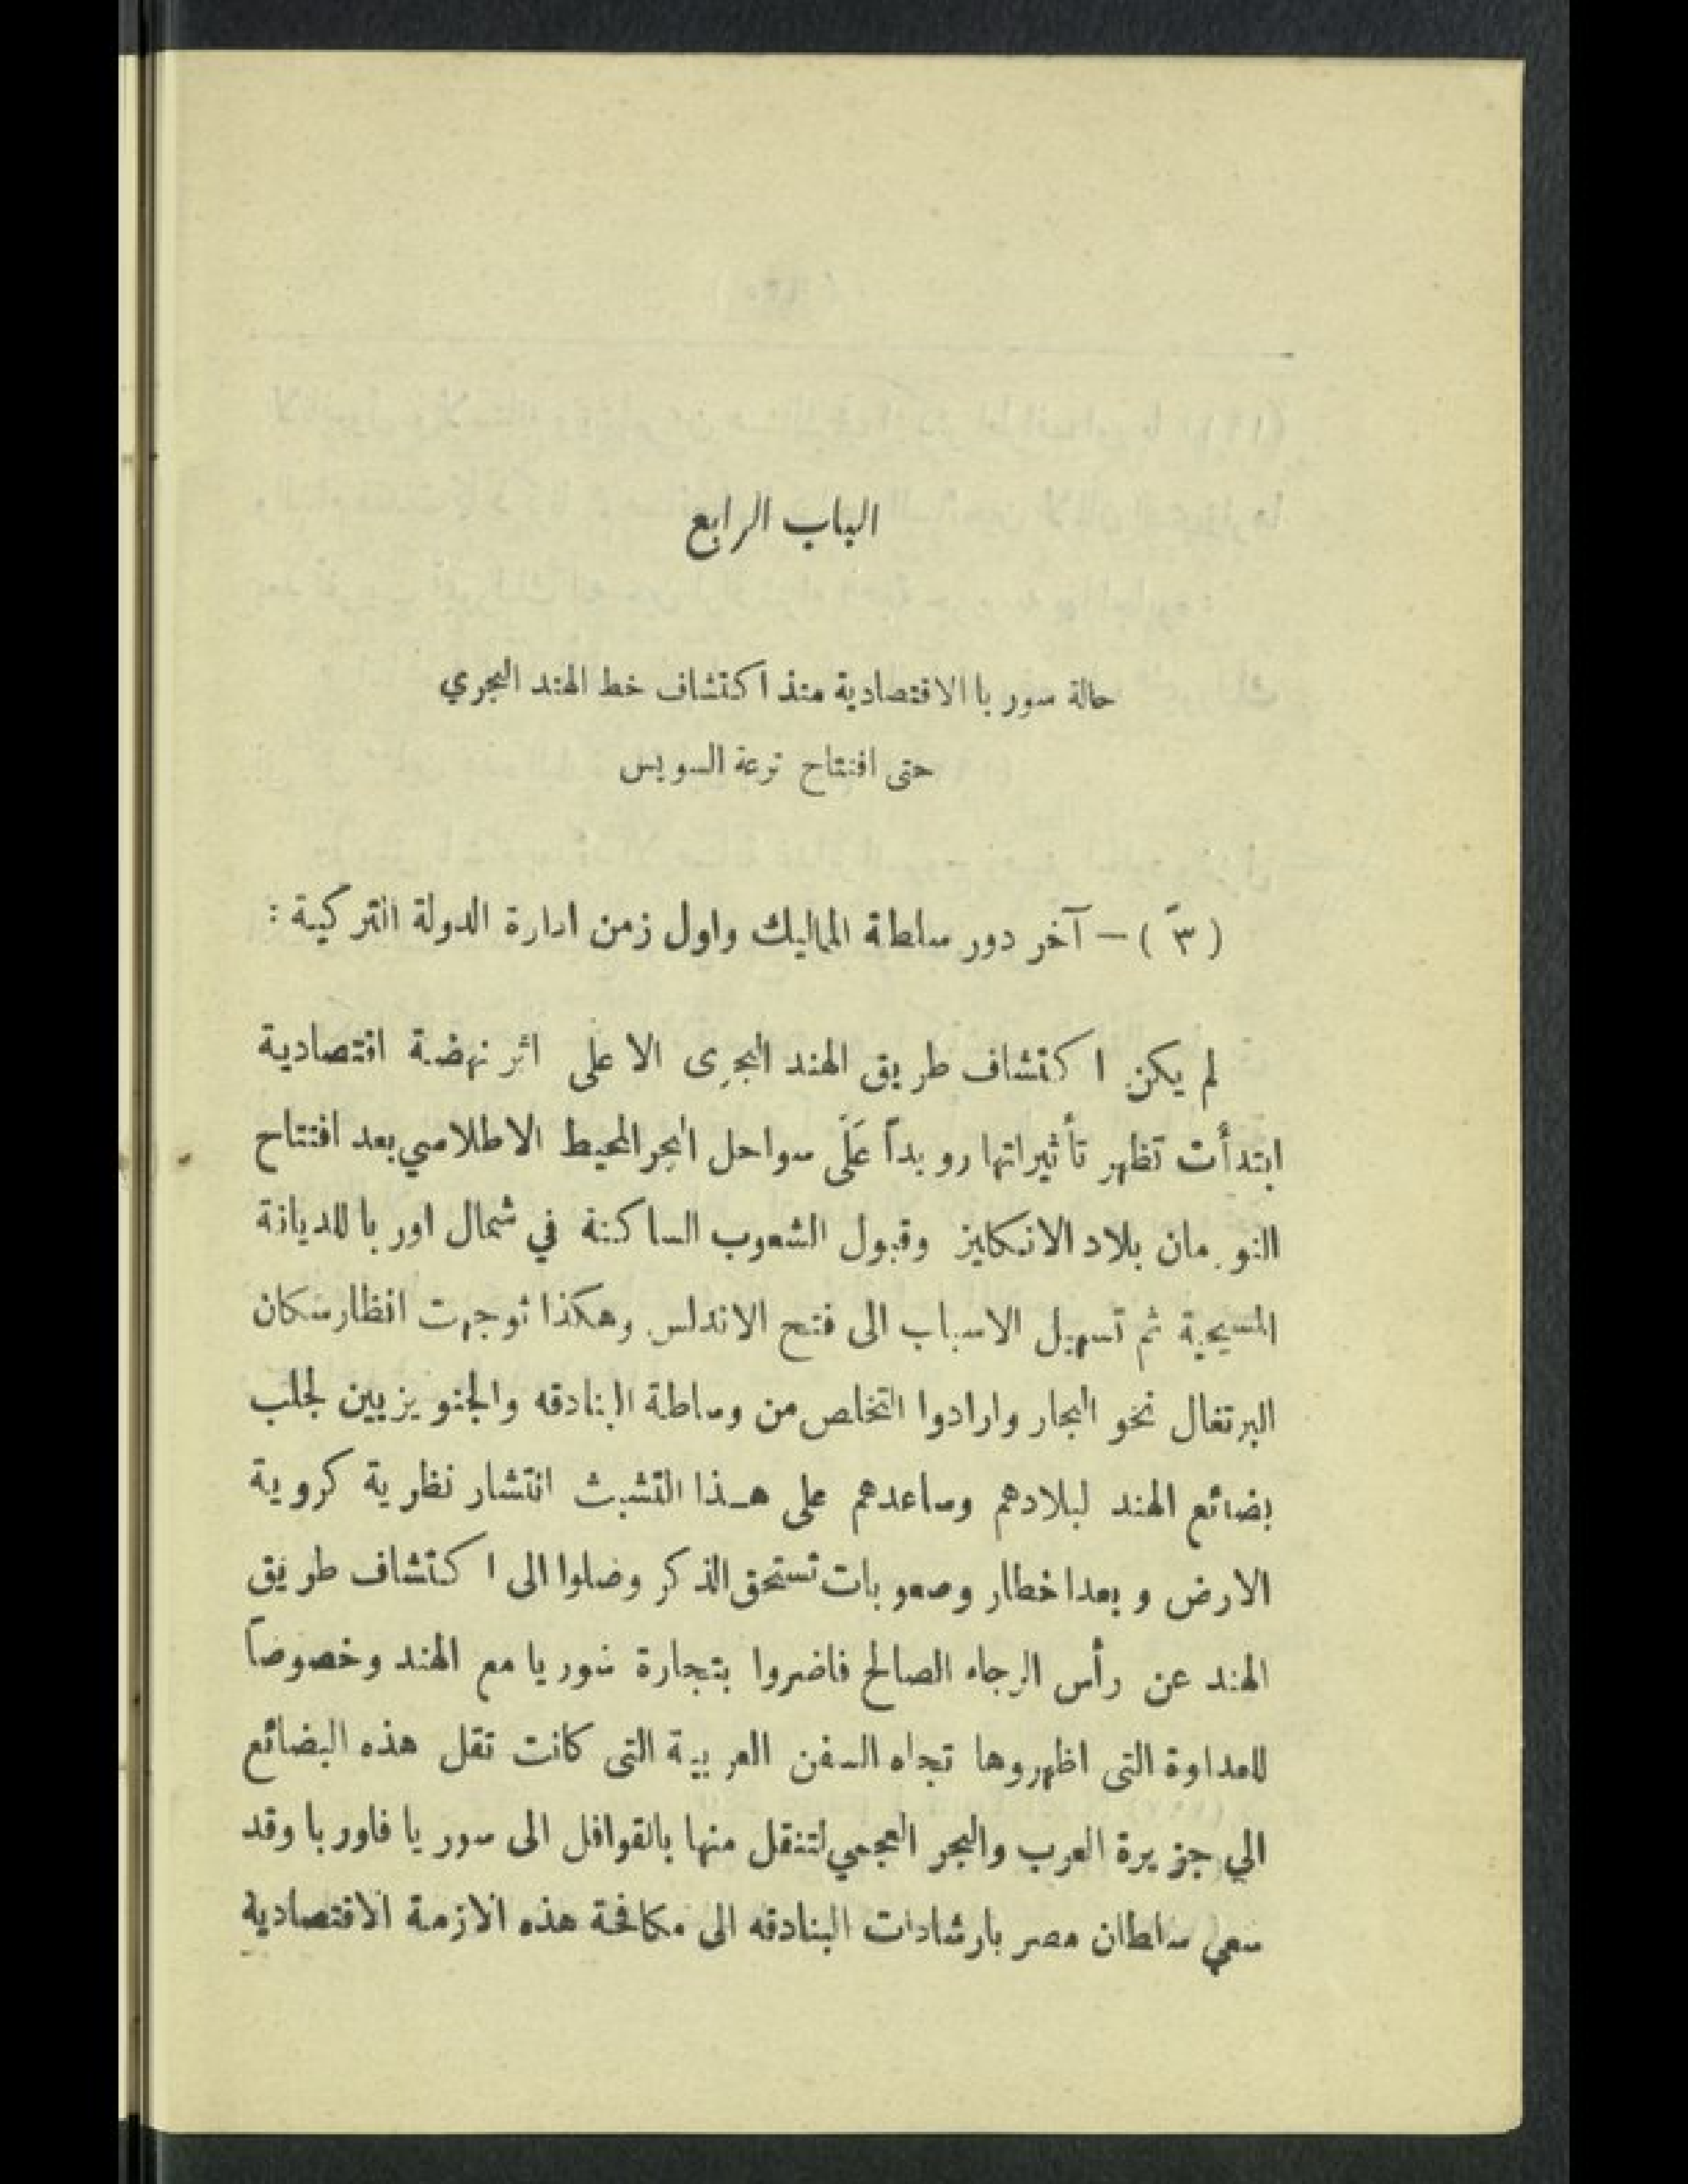 الباب الرابع
حالة سوريا الاقتصادية منذ اكتشاف خط الهند البحري
حتى افتتاح ترعة السويس
(٣ً) — آخر دور سلطة المماليك واول زمن ادارة الدولة التركية :
لم يكن اكتشاف طريق الهند البحرى الا على اثر نهضة اقتصادية
ابتدأت تظهر تأثيراتها رويداً عَلَى سواحل البحر المحيط الاطلاسي بعد افتتاح
النورمان بلاد الانكليز وقبول الشعوب الساكنة في شمال اوربا للديانة
المسيحية ثم تسهيل الاسباب الى فتح الاندلس وهكذا توجهت انظار سكان
البرتغال نحو البحار وارادوا التخلص من وساطة البنادقه والجنويزيين لجلب
بضائع الهند لبلادهم وساعدهم على هـذا التشبث انتشار نظرية كروية
الارض وبعد اخطار وصعوبات تستحق الذكر وصلوا الى اكتشاف طريق
الهند عن رأس الرجاه الصالح فاضروا بتجارة سوريا مع الهند وخصوصاً
للعداوة التى اظهروها تجاه السفن العربية التى كانت تقل هذه البضائع
الي جزيرة العرب والبحر العجمي لتنقل منها بالقوافل الى سوريا فاوربا وقد
سعي سلطان مصر بارشادات البنادقه الى مكافحة هذه الازمة الاقتصادية